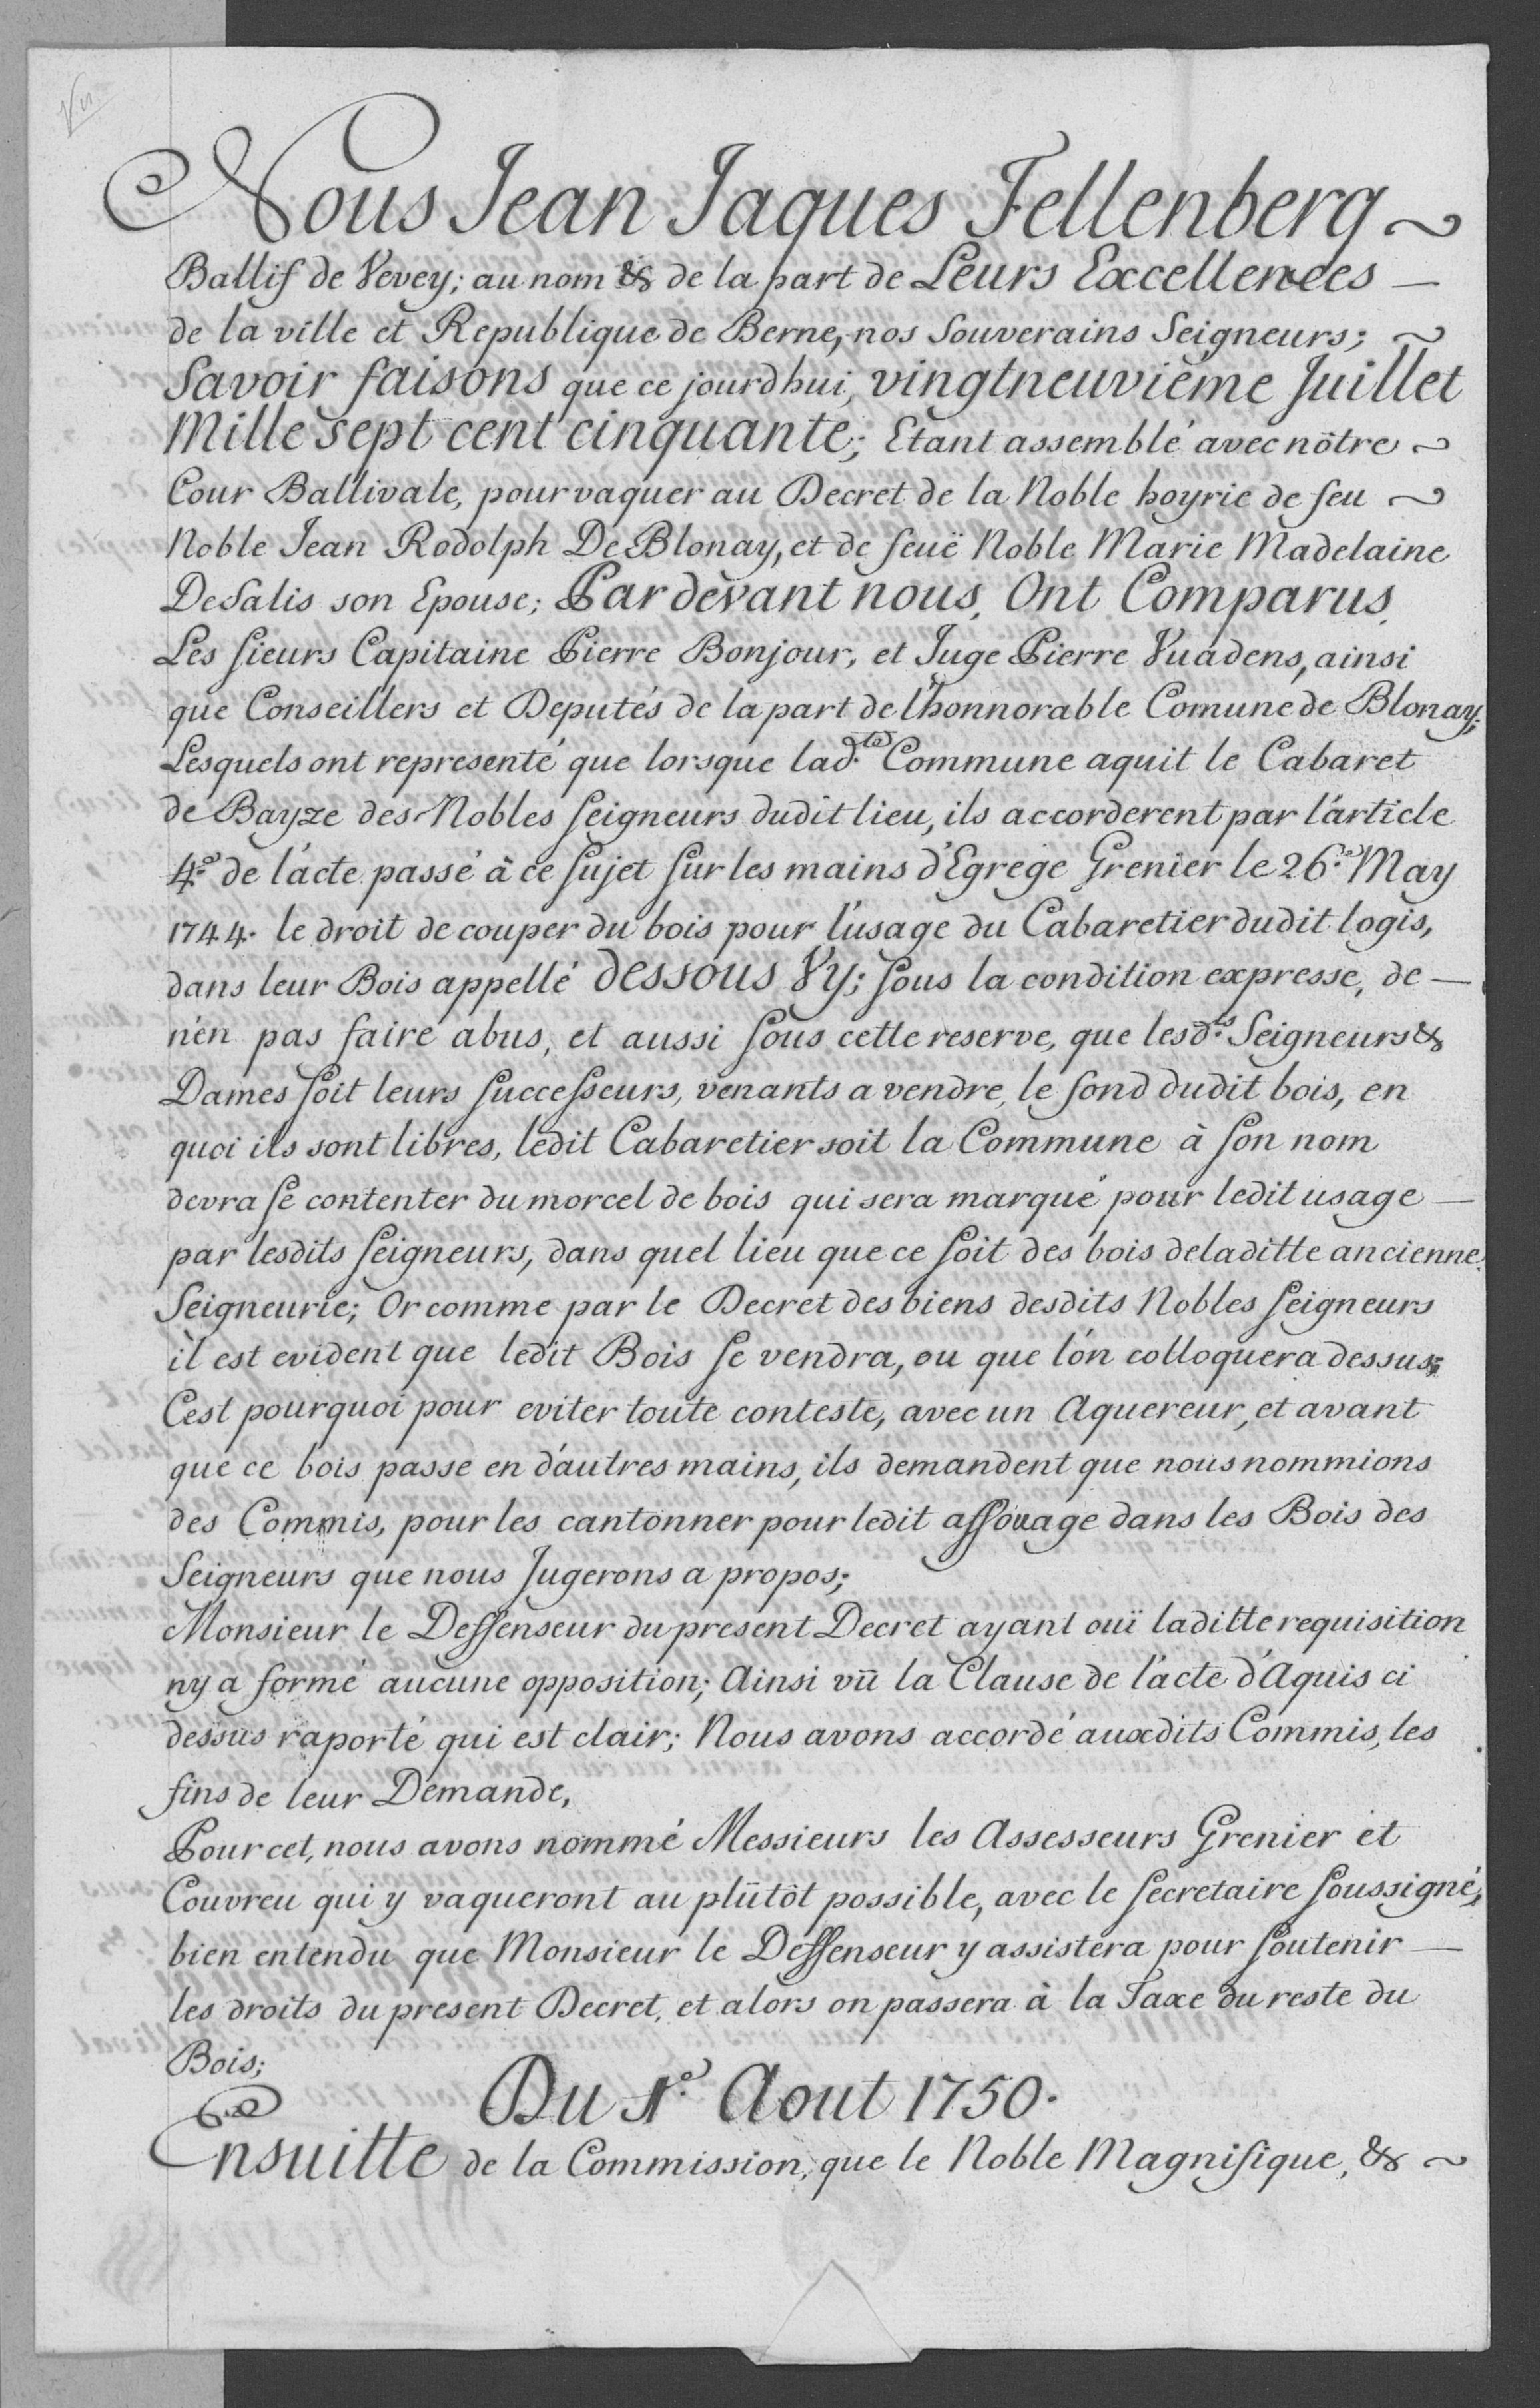 Vu
Nous Jean Jaques Fellenberg ~
Ballif de Vevey; au nom & de la part de Leurs Excellences —
de la ville et Republique de Berne, nos Souverains Seigneurs; ~
Savoir faisons que ce jourdhui, vingtneuviéme Juillet
Mille sept cent cinquante; Etant assemblé avec nôtre ~
Cour Ballivale, pour vaquer au Decret de la Noble hoyrie de feu ~
Noble Jean Rodolph De Blonay, et de feuë Noble Marie Madelaine
DeSalis son Epouse; Par dévant nous, Ont Comparus,
Les Sieurs Capitaine Pierre Bonjour, et Juge Pierre Vuadens, ainsi
que Conseillers et Deputés de la part de l'honnorable Comune de Blonay;
Lesquels ont representé que lorsque lad.te Commune aquit le Cabaret
de Bayze des Nobles Seigneurs dudit lieu, ils accorderent par l'article
4.e de l'acte passé à ce Sujet Sur les mains d'Egrege Grenier le 26.e May
1744. le droit de couper du bois pour l'usage du Cabaretier dudit logis,
dans leur Bois appellé dessous Vy; Sous la condition expresse, de —
n'en pas faire abus, et aussi Sous cette reserve, que lesd.ts Seigneurs &
Dames Soit leurs Successeurs, venants a vendre, le fond dudit bois, en
quoi ils sont libres, ledit Cabaretier soit la Commune à Son nom
devra Se contenter du morcel de bois qui sera marqué pour ledit usage —
par lesdits Seigneurs, dans quel lieu que ce Soit des bois deladitte ancienne
Seigneurie; Or comme par le Decret des biens desdits Nobles Seigneurs
il est evident que ledit Bois Se vendra, ou que l'on colloquera dessus;
C'est pourquoi pour eviter toute conteste, avec un Aquereur, et avant
que ce bois passe en d'autres mains, ils demandent que nous nommions
des Commis, pour les cantonner pour ledit affouage dans les Bois des
Seigneurs que nous Jugerons a propos;
Monsieur le Deffenseur du present Decret ayant ouï laditte requisition
ny a formé aucune opposition; Ainsi vû la Clause de l'acte d'Aquis ci
dessus raporté qui est clair; Nous avons accordé auxdits Commis, les
fins de leur Demande,
Pour cet, nous avons nommé Messieurs les Assesseurs Grenier et
Couvreu qui y vaqueront au plûtôt possible, avec le Secretaire Soussigné;
bien entendu que Monsieur le Deffenseur y assistera pour Soutenir —
les droits du present Decret, et alors on passera à la Taxe du reste du
Bois;
Du 1.e Aout 1750.
Ensuitte de la Commission, que le Noble Magnifique, & ~